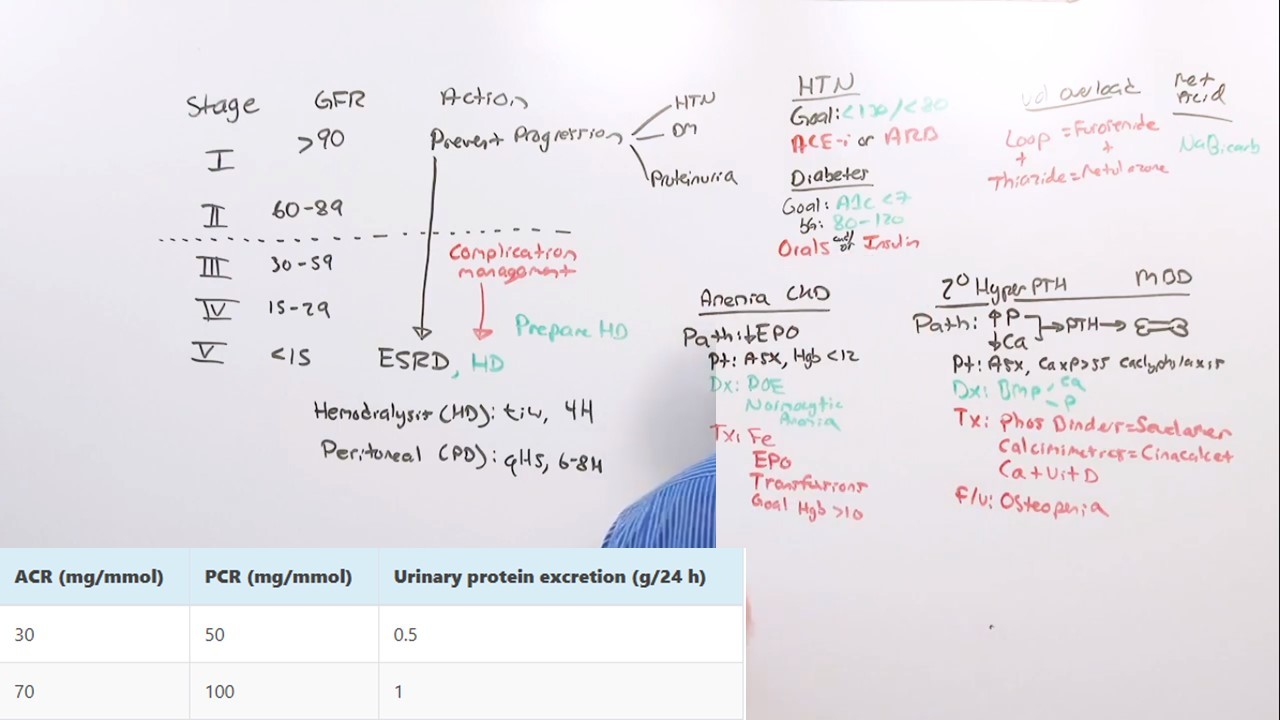 Stage GFR Action
I >90 Prevent Progression
HTN
DM
Proteinuria
II 60-89
III 30-59
IV 15-29
V <15
Complication
management
Prepare HD
ESRD, HD
Hemodialysis (HD): tiw, 4H
Peritoneal (PD): qHS, 6-8H
HTN
Goal: <130/<80
ACE-i or ARB
Diabetes
Goal: A1c <7
bG: 80-120
Orals and/or Insulin
Vol overload
Loop = Furosemide
+ +
Thiazide = Metolazone
Met
Acid
NaBicarb
Anemia CKD
Path: ↓EPO
Pt: ASX, Hgb <12
Dx: DOE
Normocytic
Anemia
Tx: Fe
EPO
Transfusions
Goal Hgb >10
2° HyperPTH MBD
Path: ↑P
↓Ca
→PTH→
Pt: ASX, CaxP>55 caclyphylaxis
Dx: Bmp - Ca
- P
Tx: Phos Binders = Sevelamer
Calcimimetics = Cinacalcet
Ca + Vit D
F/u: Osteopenia
ACR (mg/mmol) PCR (mg/mmol) Urinary protein excretion (g/24 h)
30 50 0.5
70 100 1